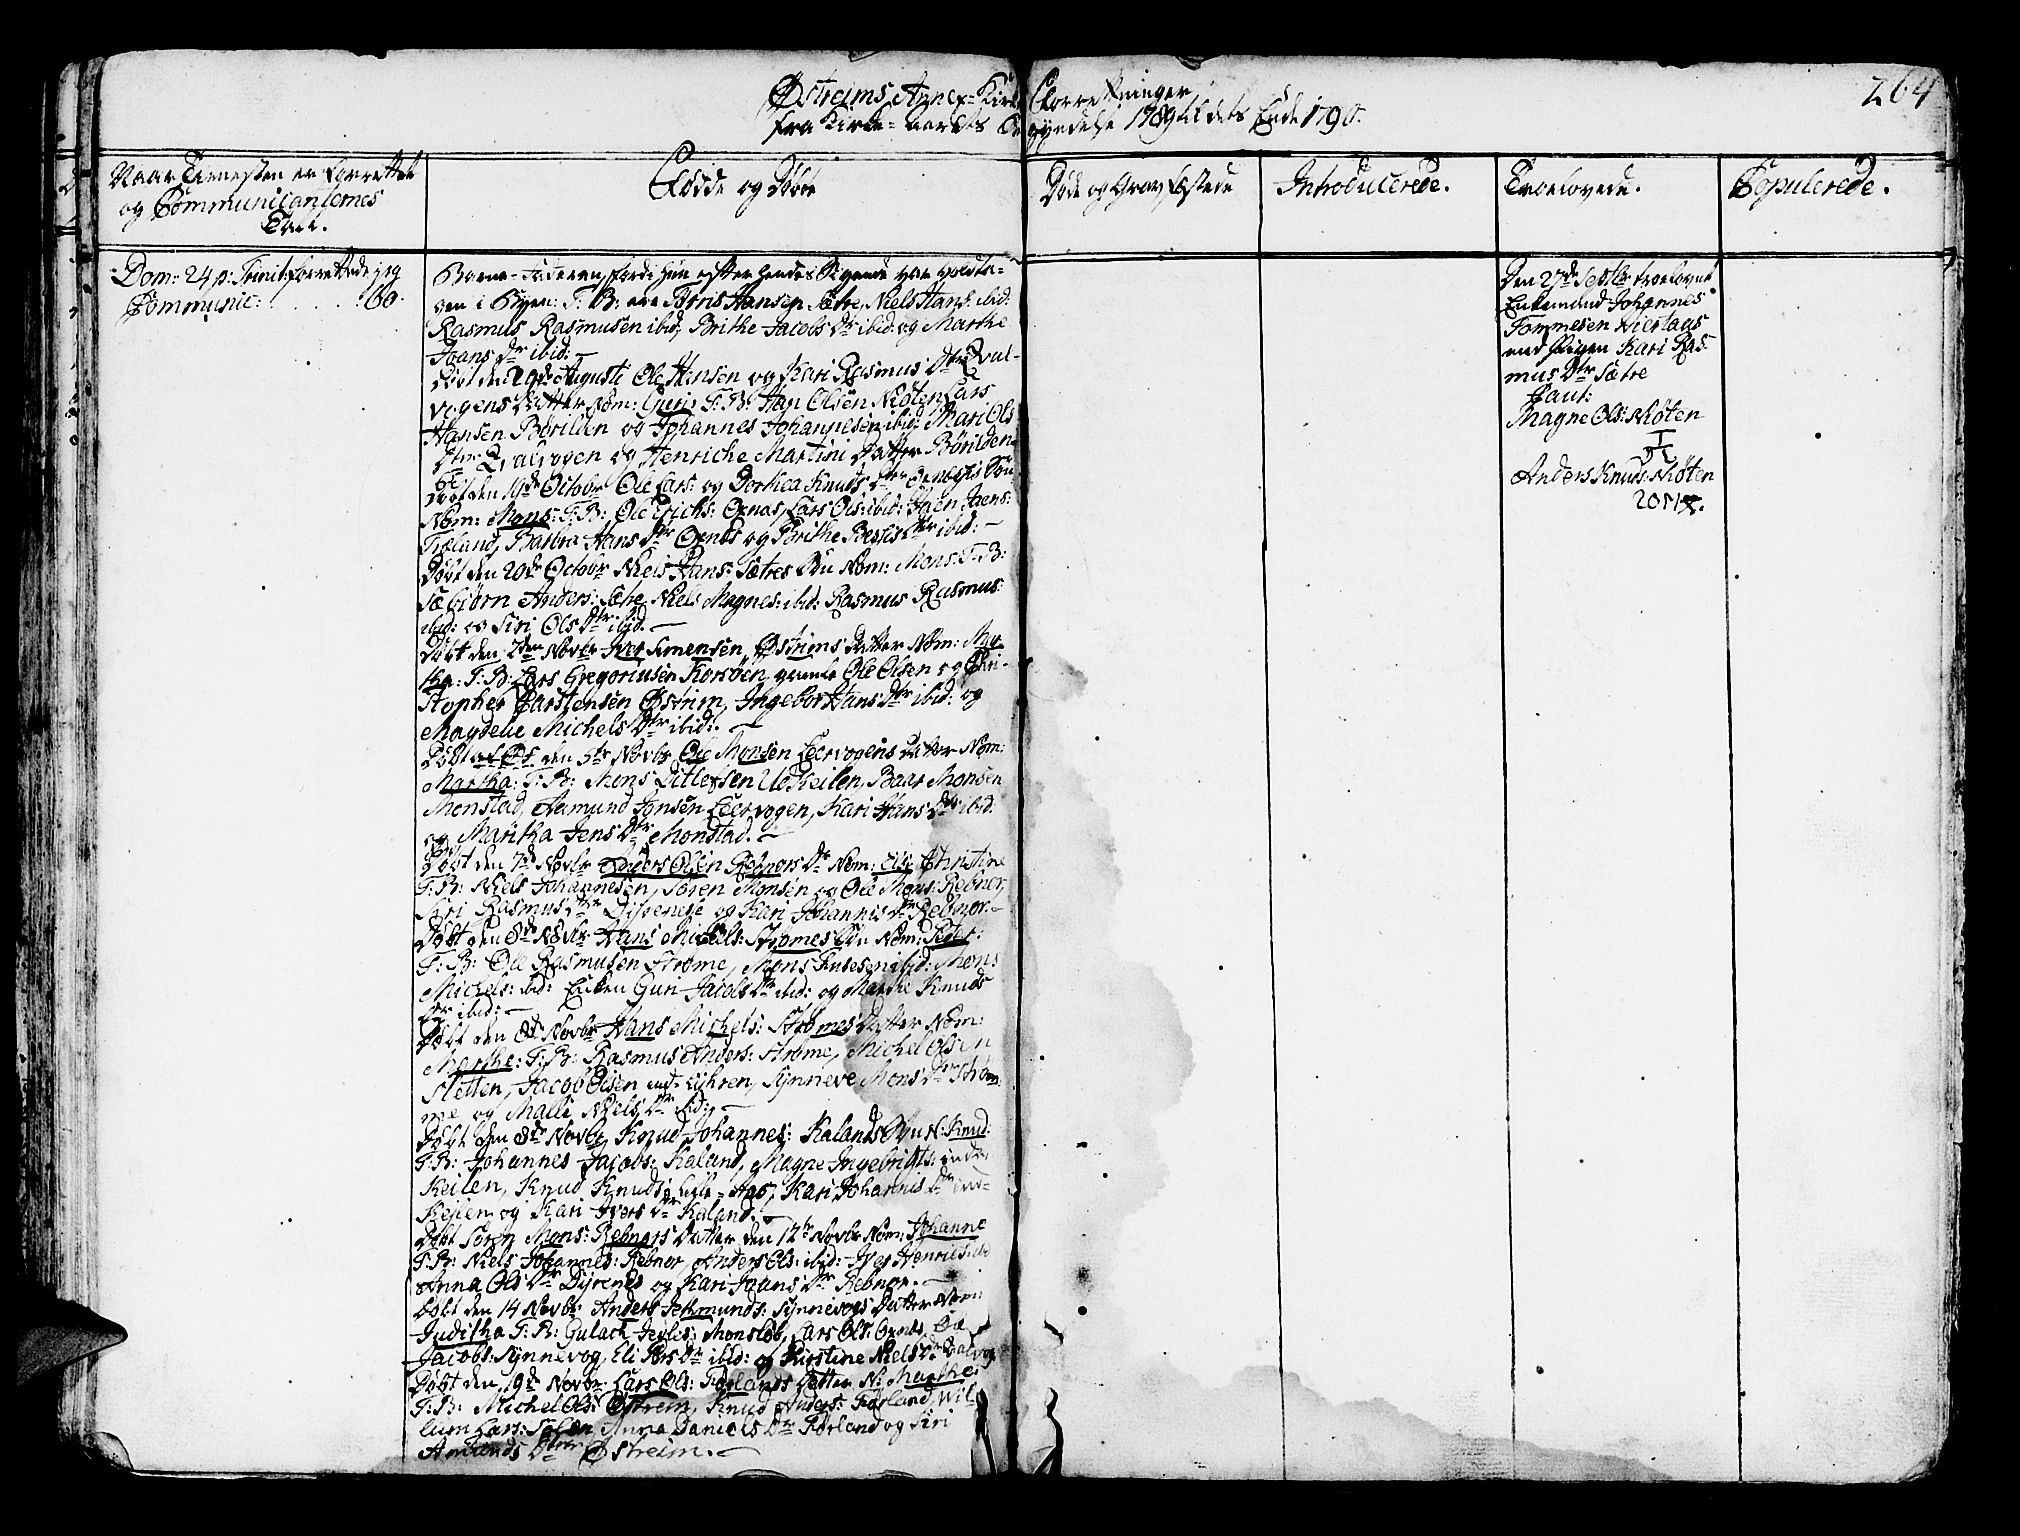 264
Østreims Annex-Kirk Forretninger
fra Kirke-Aarets Begyndelse 1789 til dets Ende 1790.
Naar Tienesten er forrettet
og Communicanternes
Tall.
Fødde og Døbte
Døde og Grav fæstede
Introducerede.
Troelovede.
Copulerede.
Dom: 24 p: Trinit: forrettede jeg
Communic: 60.
Barne-Faderen, fordi hun efter hendes Sigende var voldta-
gen i Byen: F: B: ere Joris Hansen Sætre, Niels Hans: ibid:
Rasmus Rasmusen ibid, Brithe Jacobs Dtr ibid: og Marthe
Joans Dtr ibid:-
Døbt den Augusti Ole Hansen og Kari Rasmus Dtr Qval-
vogens Datter Nom: Guri, F: B: Olsen Niøten, Lars
Hansen Børilden og Johannes Johannesen ibid: Mari Ols
Dtr Qvalvogen og Henriche Martini Datter Børilden
Døbt den 19de Octobr Ole Lars: og Dorthea Knuds Dtr Søn
Nom: Mons: F: B: Ole Erichs: Oxnas, Lars Ols: ibid: Joen Joens:
Træland, Barbra Hans Dtr Oxnes og Brithe Dtr ibid:-
Døbt den 20de Octobr Niels Hans: Sætres Søn Nom: Mons: F: B:
Sæbjørn Anders: Sætre, Niels Magnes: ibid: Rasmus Rasmus:
ibid: og Siri Ols Dtr ibid.-
Døbt den Novbr Iver Simensen Østrims Datter Nom: Mar-
tha: F: B: Lars Gregoriusen Korsøen, gamle Ole Olsen og Chri-
stopher Carstensen Østrim, Ingebor Hans Dtr ibid: og
Magdele Michels Dtr ibid:-
Døbt den 5te Novbr Ole Monsen Leervogens Datter Nom:
Martha: F: B: Mons Ditlefsen Udkeilen, Baar Monsen
Monstad, Aamund Jonsen Leervogen, Kari Hans Dtr ibid:
og Maritha Jens Dtr Monstad.-
Døbt den 7de Novbr Anders Olsen Rebnors Dtr Nom: Elie Christine
F: B: Niels Johannesen, Søren Monsen og Ole Mons: Rebnor,
Siri Rasmus Dtr og Kari Johannis Dtr Rebnor.-
Døbt den 8de Novbr Hans Michels: Strømes Søn Nom: Peder:
F: B: Ole Rasmusen Strøme, Mons ibid: Mons
Michels: ibid: Enken Guri Jacobs Dtr ibid: og Marthe Knuds
Dtr ibid:-
Døbt den 8de Novbr Hans Michels: Strømes Datter Nom:
Marthe: F: B: Rasmus Anders: Strøme, Michel Olsen
Sletten, Jacob Olsen ind-Lyhren, Synneve Mons Dtr Strøm-
me og Malli Niels Dtr ibid:-
Døbt den 8de Novbr Knud Johannes: Kalands Søn N: Knud:
F: B: Johannes Jacobs: Kaland, Magne Ingebrigts: inde-
Keilen, Knud Knuds: Lille-Aas, Kari Johannis Dtr ind-
Keilen og Kari Ivers Dtr Kaland.-
Døbt Søren Mons: Rebnors Datter den 12te Novbr Nom: Johanne
F: B: Niels Johannes: Rebnor, Anders Ols: ibid: Iver Henrics:
Anna Ols Dtr Dyrenes og Kari Joans Dtr Rebnor.-
Døbt den 14 Novbr Anders Synnevogs Datter Nom:
Juditha F: B: Gulach Lars Ols: Oxnes, Ole
Jacobs: Synnevog, Eli Pers Dtr ibid: og Kirstine Niels Dtr
Døbt den 19de Novbr Lars Ols: Førlands Datter N: Marthe:
F: B: Michel Ols: Østreim, Knud Anders: Førland, Wil-
lum Lars: Anna Daniels Dtr Førland og Siri
Amunds Dtr Østreim.-
Den 27de Septbr troelovet
Enkemand Johannes
Tommesen Hiertaas
med Pigen Kari Ras-
mus Dtr Sætre
Caut:
Magne Ols: Niøten
Anders Knuds: Niøten